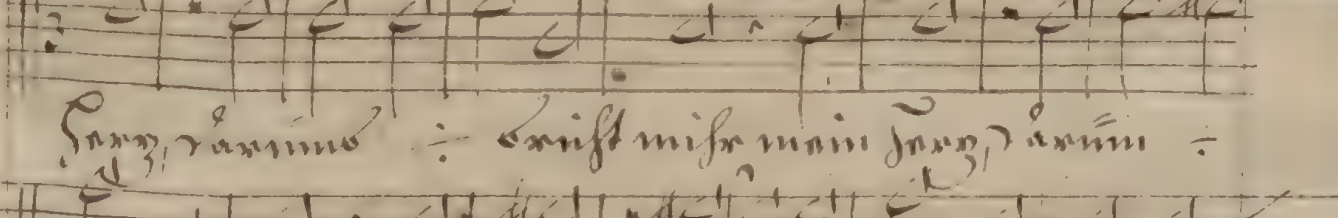 Hertz, darumb ÷ bricht mihr mein Hertz, darum ÷